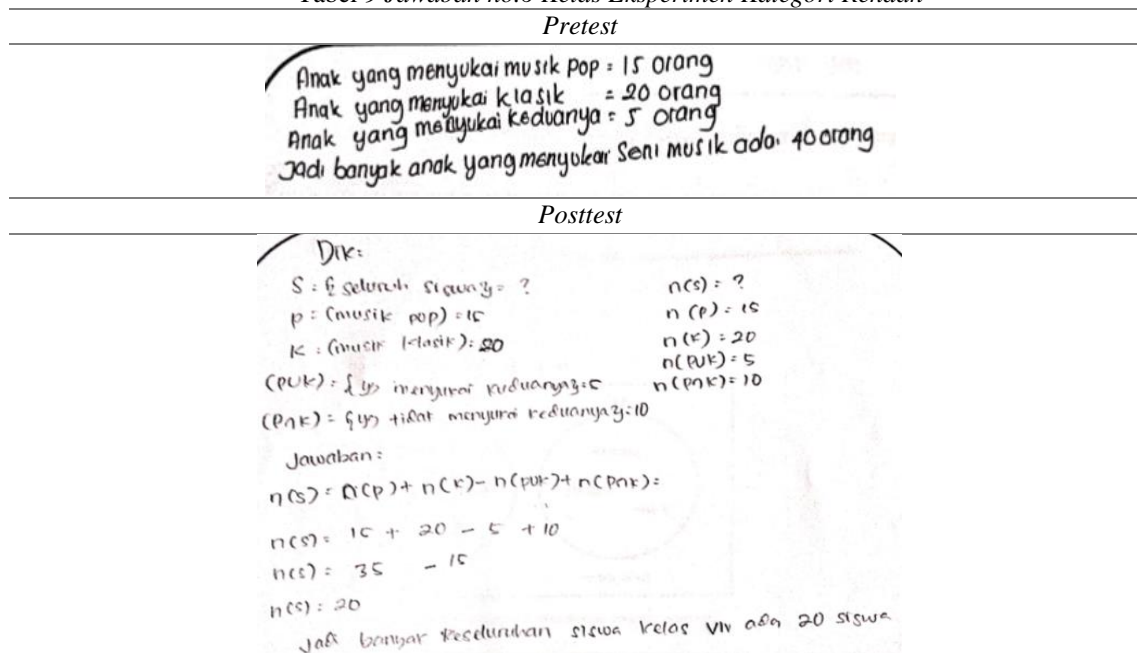 Tabel 9 Jawaban no.6 Kelas Eksperimen Kategori Rendah
Pretest
Anak yang menyukai musik pop = 15 orang
Anak yang menyukai klasik = 20 orang
Anak yang menyukai keduanya = 5 orang
Jadi banyak anak yang menyukai Seni musik ada 40 orang
Posttest
Dik:
S : { seluruh siswa} = ?
n(s) = ?
p = (musik pop) = 15
n (P) = 15
K : (musik klasik) = 20
n(K) = 20
n(PUK) = 5
(PUK) = {yg menyukai keduanya} = 5
n(P∩K) = 10
(P∩K) = {yg tidak menyukai keduanya} = 10
Jawaban :
n(S) = n(P) + n(K) - n(PUK) + n(P∩K) =
n(S) = 15 + 20 - 5 + 10
n(S) = 35 - 15
n(S) = 20
Jadi banyak keseluruhan siswa kelas ada 20 siswa